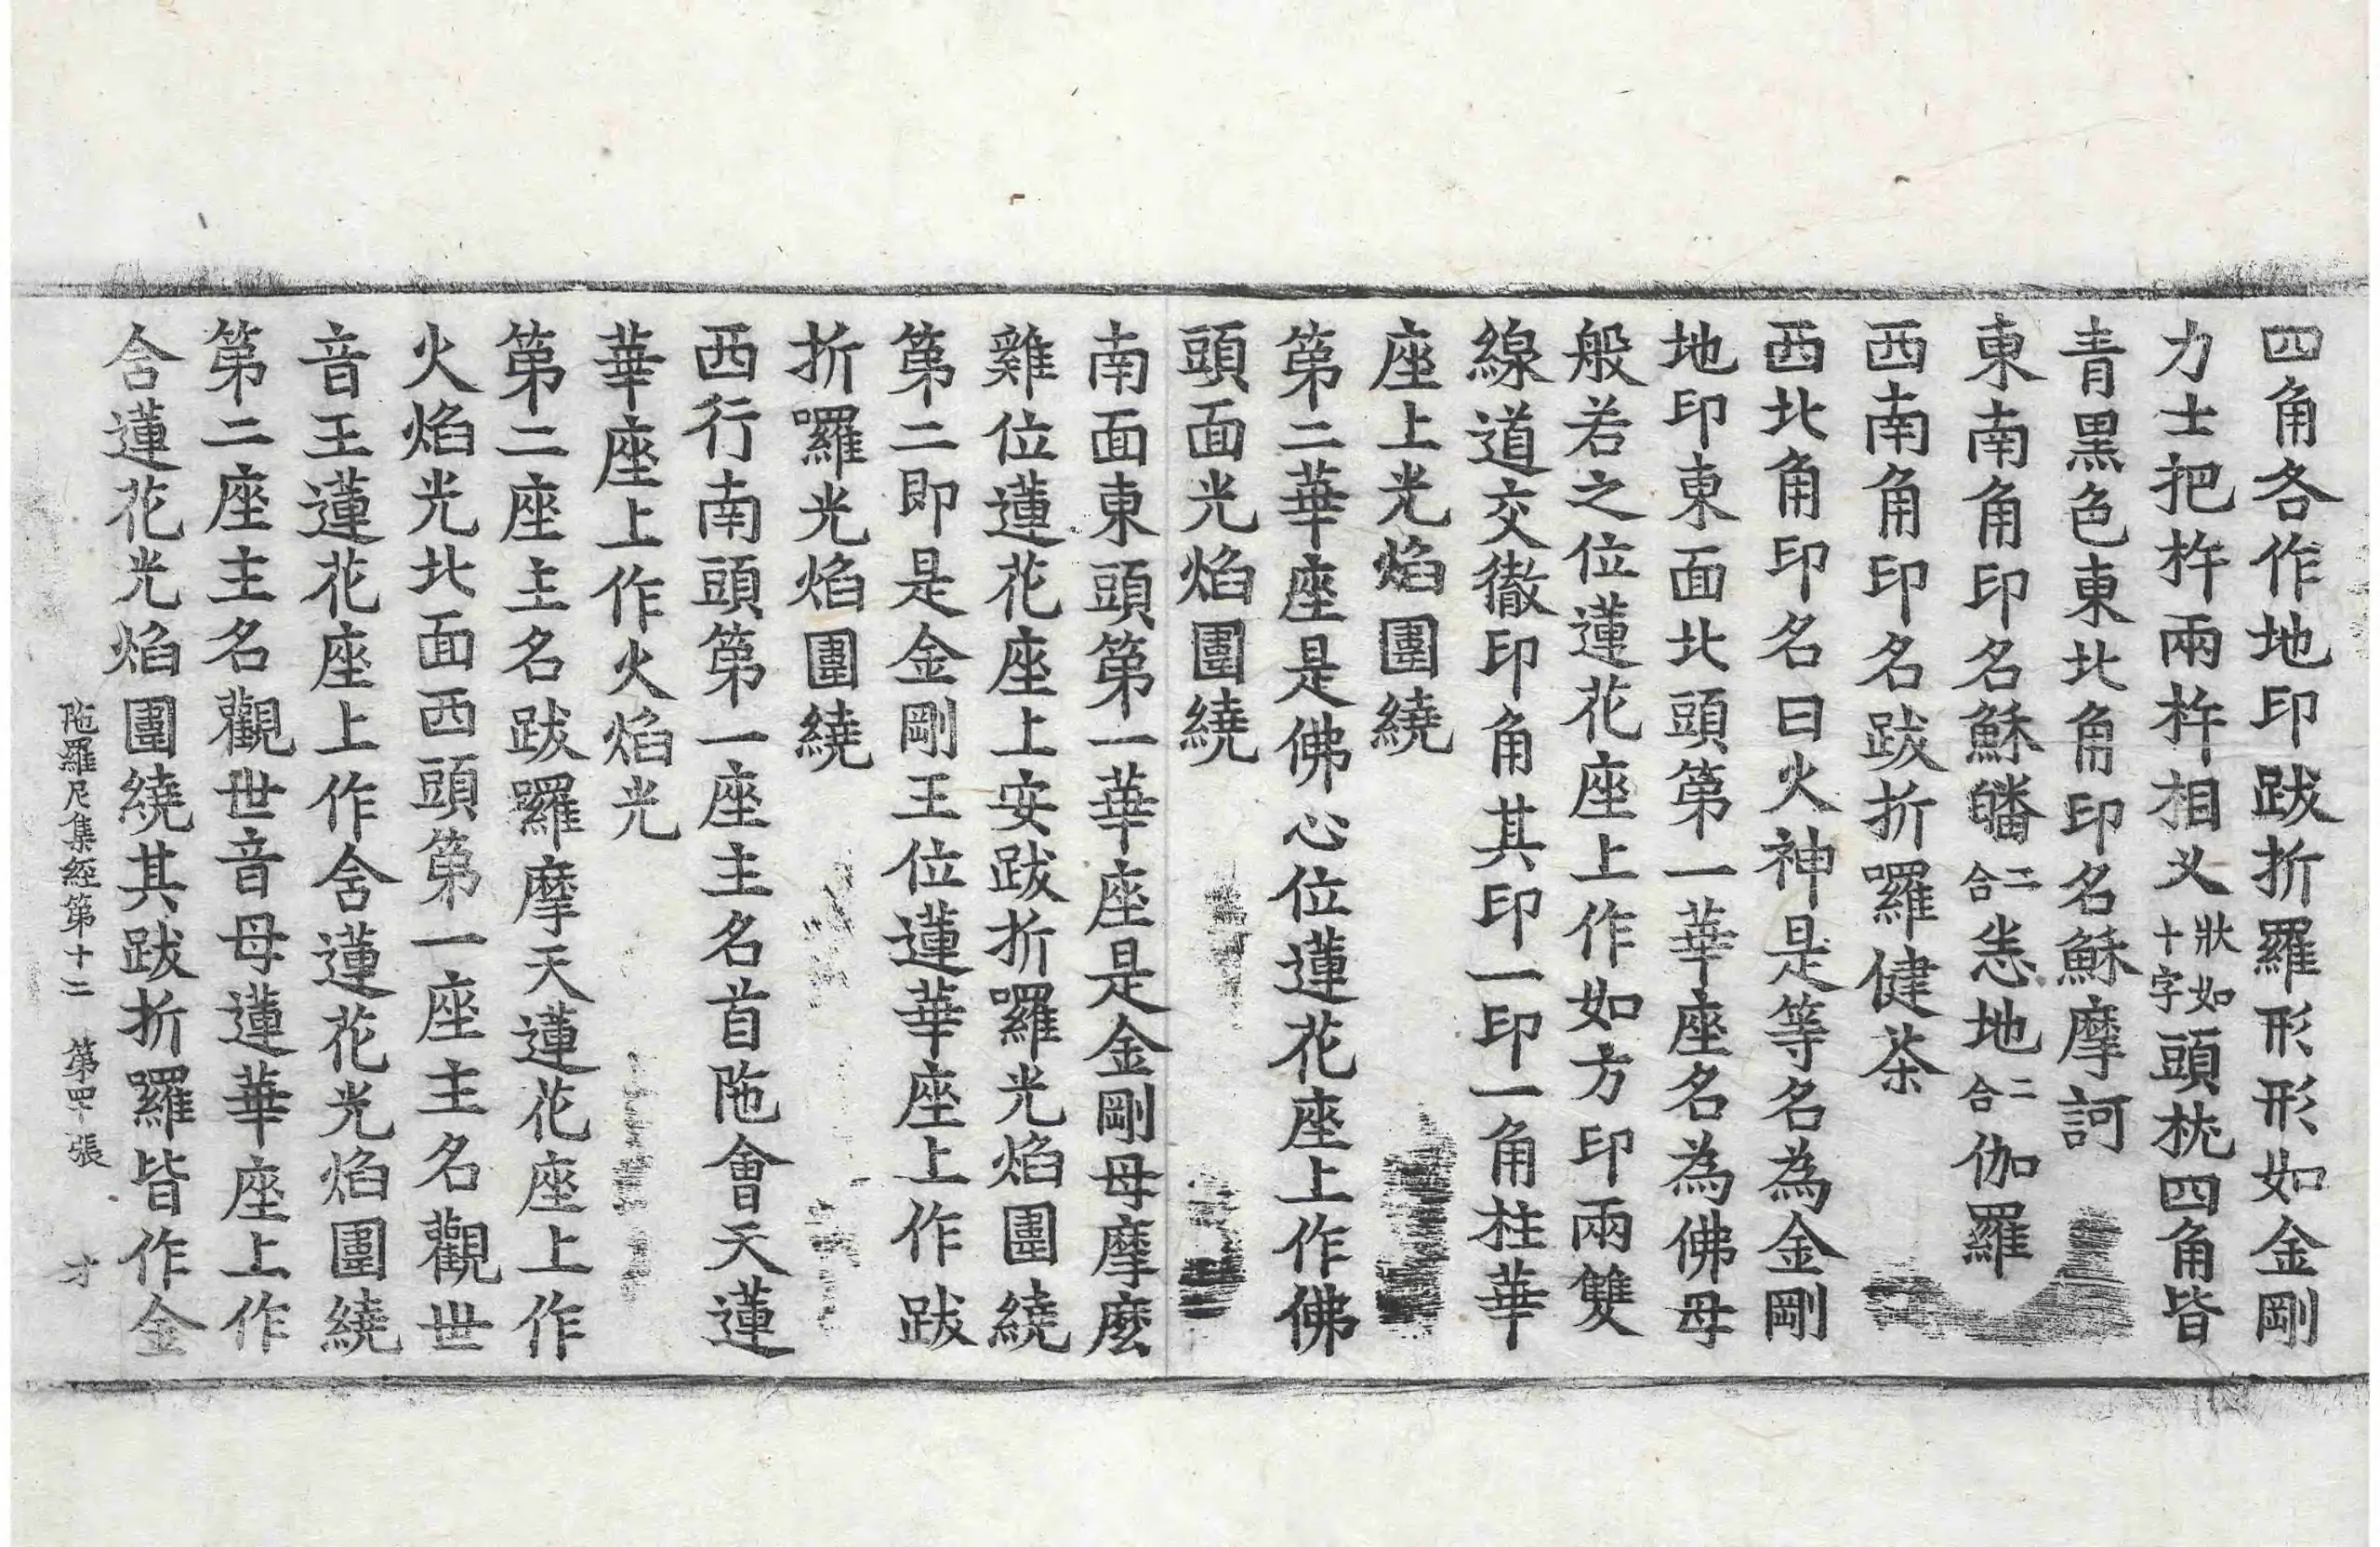 四角各作地印跋折羅形形如金剛
力士把杵兩杵相叉狀如十字頭枕四角皆
青黑色東北角印名穌摩訶
東南角印名穌皤二合恙地二合伽羅
西南角印名跋折囉健茶
西北角印名曰火神是等名為金剛
地印東面北頭第一華座名為佛母
般若之位蓮花座上作如方印兩雙
線道交徹印角其印一印一角柱華
座上光焰圍繞
第二華座是佛心位蓮花座上作佛
頭面光焰圍繞
南面東頭第一華座是金剛母摩麼
雞位蓮花座上安跋折囉光焰圍繞
第二即是金剛王位蓮華座上作跋
折囉光焰圍繞
西行南頭第一座主名首陁會天蓮
華座上作火焰光
第二座主名跋躍摩天蓮花座上作
火焰光北面西頭第一座主名觀世
音王蓮花座上作含蓮花光焰圍繞
第二座主名觀世音母蓮華座上作
含蓮花光焰圍繞其跋折羅皆作金
陁羅尼集經第十二 第四十張 才